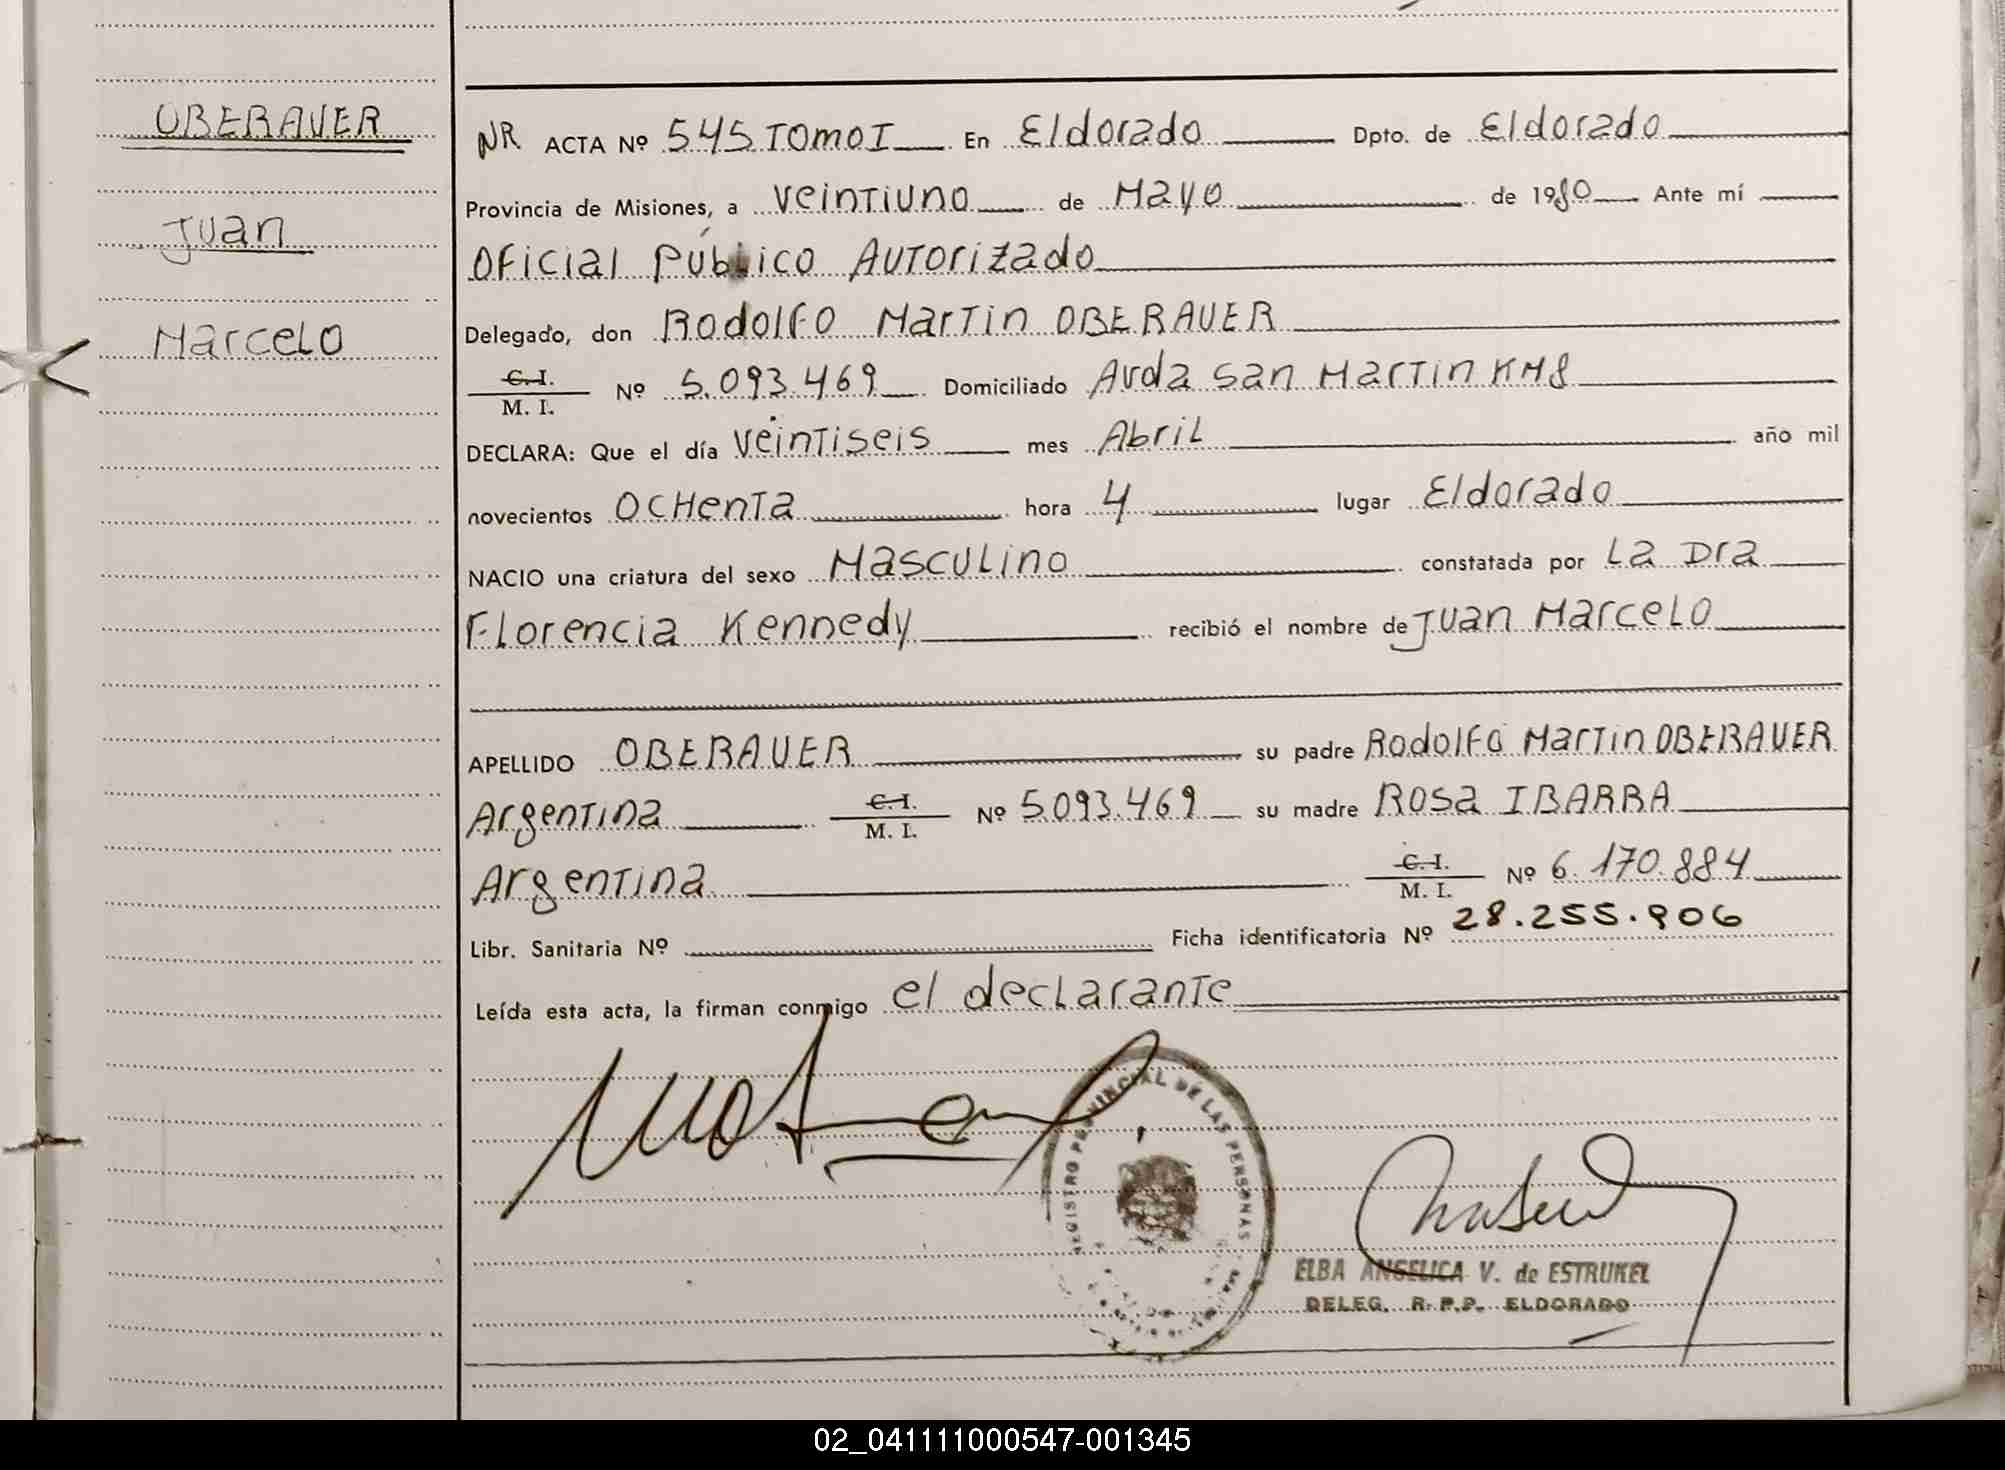 OBERAUER
Juan
Marcelo
NR ACTA Nº 545 TOMO I En Eldorado Dpto. de Eldorado
Provincia de Misiones, a veintiuno de Mayo de 1980 Ante mí
Oficial Público Autorizado
Delegado, don Rodolfo Martin OBERAUER
C. I.
M. I. Nº 5.093.469 Domiciliado Avda San Martin KM8
DECLARA: Que el día veintiseis mes Abril año mil
novecientos OCHenta hora 4 lugar Eldorado
NACIO una criatura del sexo Masculino constatada por La Dra
Florencia Kennedy recibió el nombre de Juan Marcelo
APELLIDO OBERAUER su padre Rodolfo Martin OBERAUER
Argentina C. I.
M. I. Nº 5.093.469 su madre Rosa IBARRA
Argentina C. I.
M. I. Nº 6.170.884
Libr. Sanitaria Nº Ficha identificatoria Nº 28.255.906
Leída esta acta, la firman conmigo el declarante
REGISTRO PROVINCIAL DE LAS PERSONAS
ELBA ANGELICA V. de ESTRUKEL
DELEG. R. P. P. ELDORADO
02_041111000547-001345